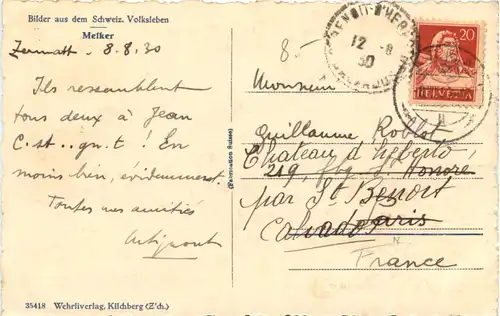 Bilder aus dem Schweiz. Volksleben
Melker
Zermatt - 8.8.30
Ils ressemblent
tous deux à Jean
C.st..gn.t! En
moins bien, évidemment.
Toutes nos amitiés
8-
12 -8
30
20
HELVETIA
Monsieur
Guillaume Roblot
Chateau d'
219, fbg St Honoré
par St Benoit
Paris
Calvados
France
(Fabrication Suisse)
35418 Wehrliverlag, Kilchberg (Z'ch.)